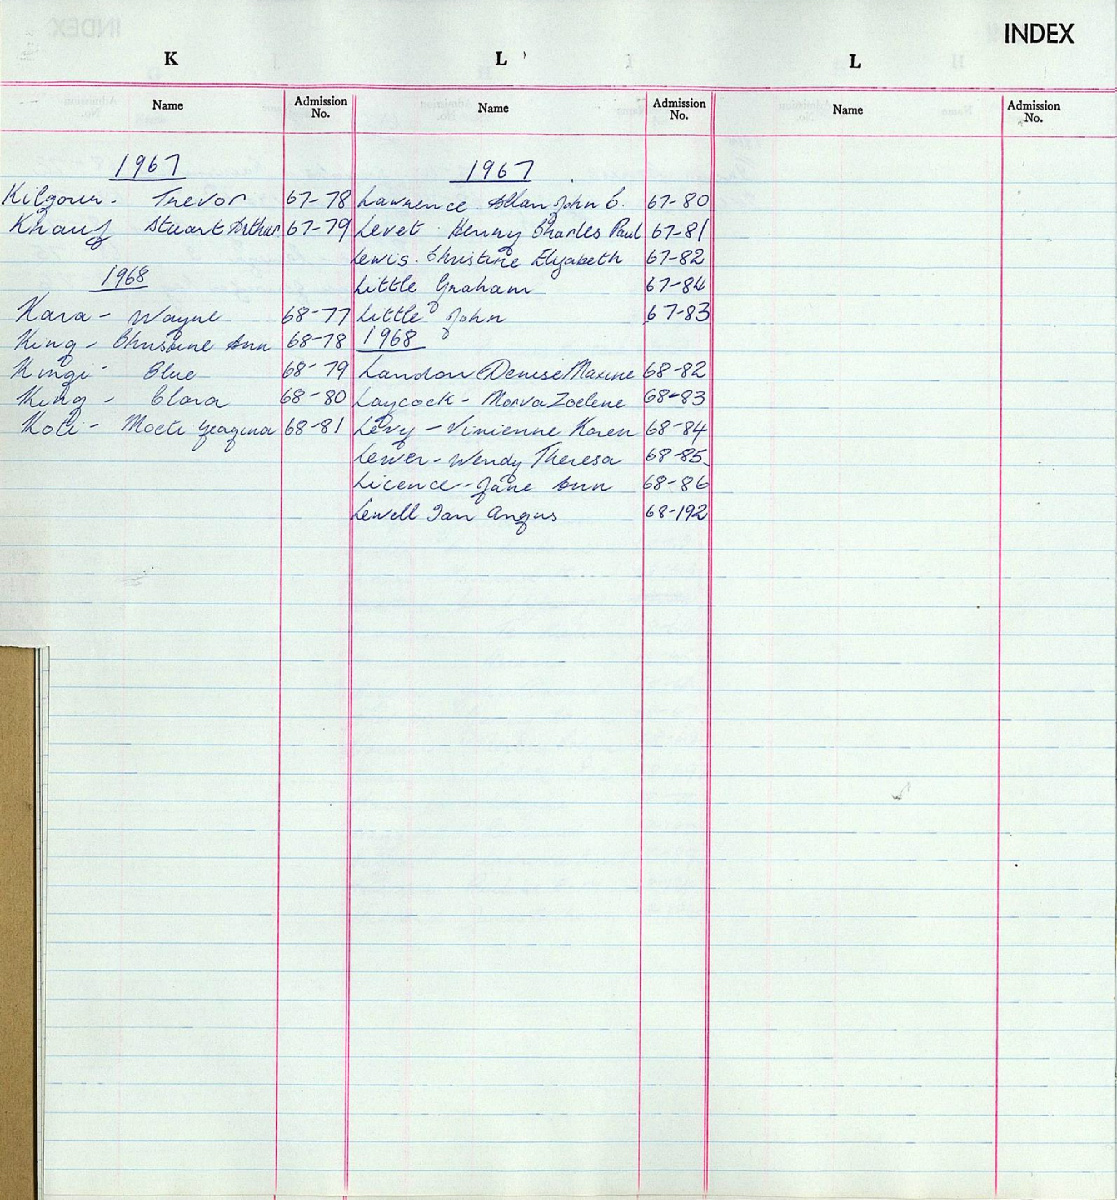 INDEX
K
Name Admission No.
1967
Kilgour - Trevor 67-78
Knauf Stuart Arthur 67-79
1968
Kara - Wayne 68-77
King - Christine Ann 68-78
Kingi - Blue 68-79
King - Clara 68-80
Koti - 68-81
L
Name Admission No.
1967
Lawrence Allan John C. 67-80
Levet Henry Charles Paul 67-81
Lewis. Christine Elizabeth 67-82
Little Graham 67-84
Little John 67-83
1968
Landon Denise Maxine 68-82
Laycock - Morva Zoelene 68-83
Levy - Vivienne Karen 68-84
Lewer - Wendy Theresa 68-85
Licence - Jane Ann 68-86
Lewell Ian Angus 68-192
L
Name Admission No.